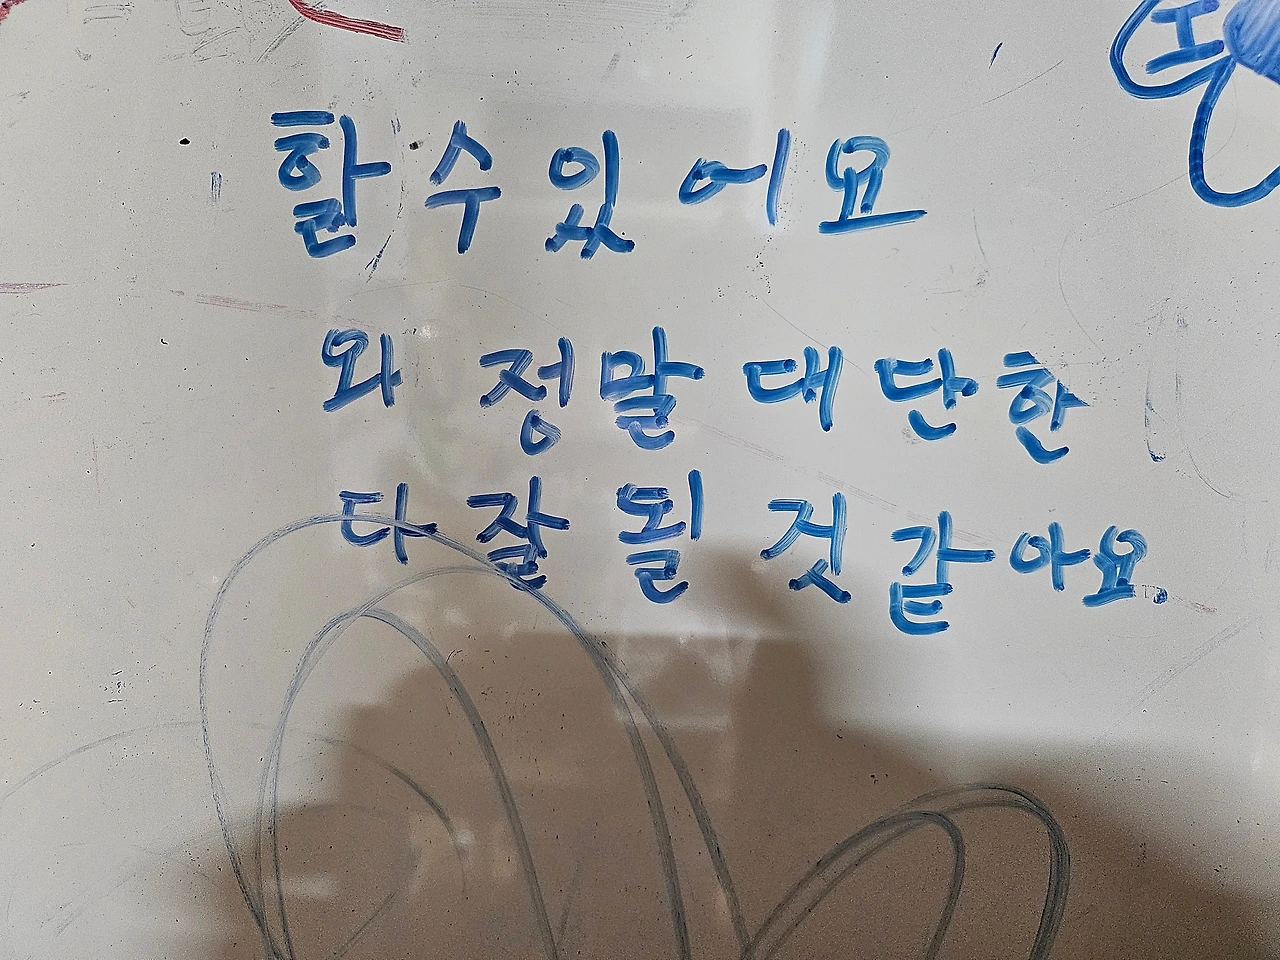 할 수 있어요
와 정말 대단한
다 잘 될 것 같아요.